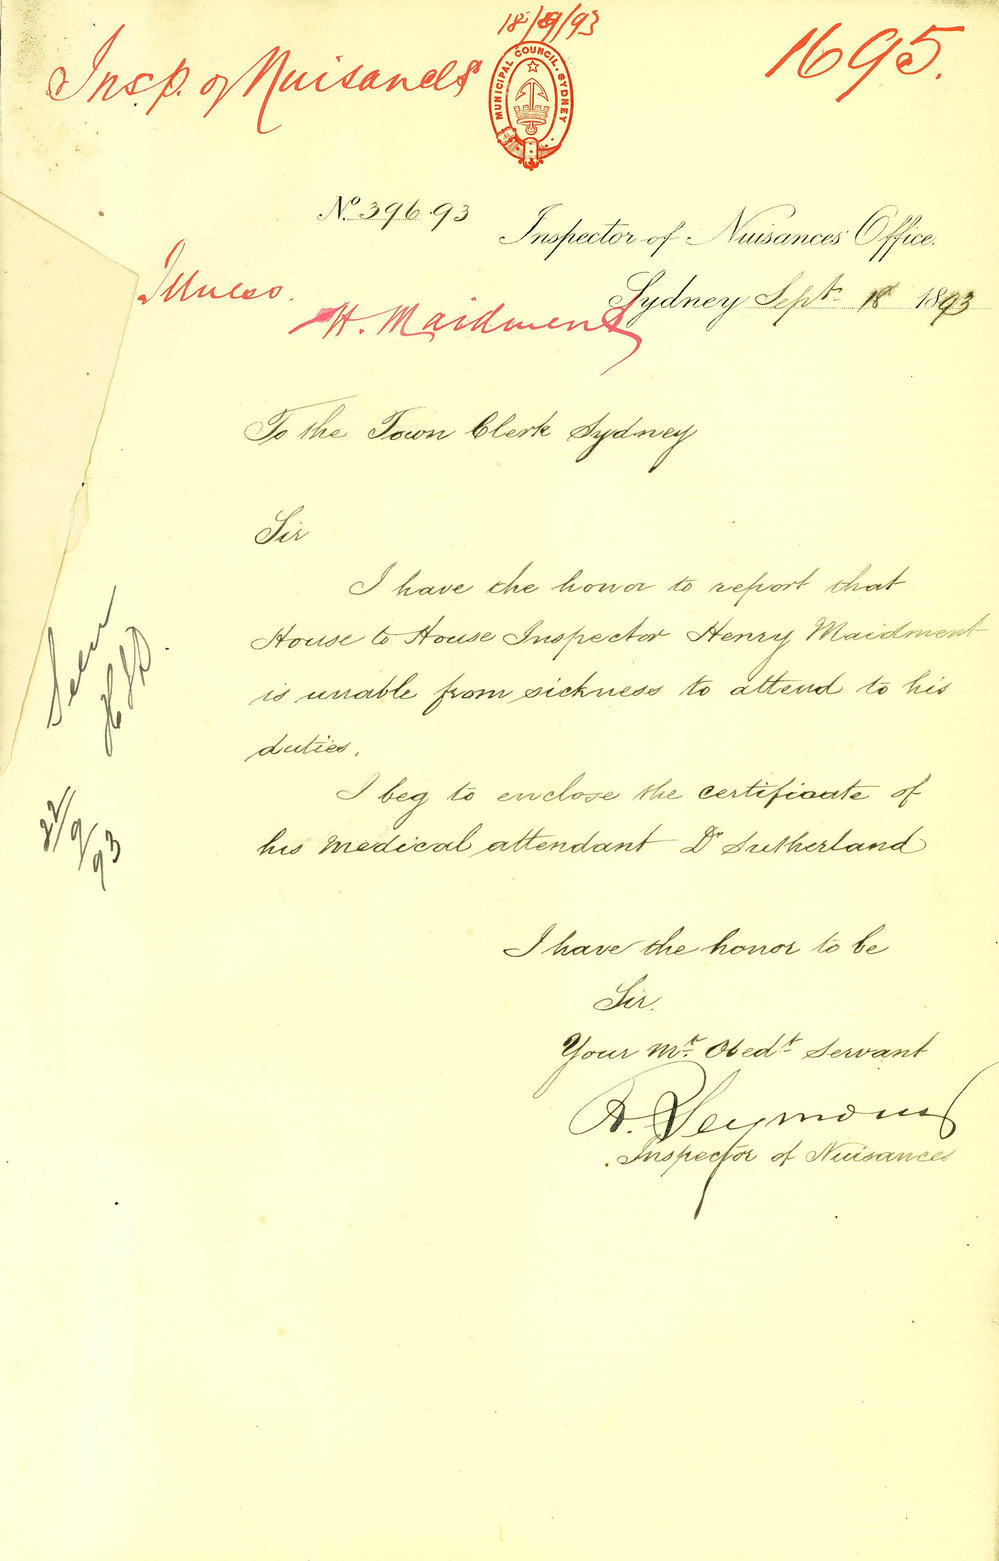 18/9/93
Insp. of Nuisances
1695.
MUNICIPAL COUNCIL. SYDNEY
No. 396.93
Inspector of Nuisances Office.
Illness.
Sydney Sept. 18 1893
H. Maidment
To the Town Clerk Sydney
Sir
I have the honor to report that
House to House Inspector Henry Maidment
is unable from sickness to attend to his
duties.
I beg to enclose the certificate of
his medical attendant Dr Sutherland
Seen
22/9/93
I have the honor to be
Sir.
Your Mt. Obedt. Servant
R. Seymour
Inspector of Nuisances